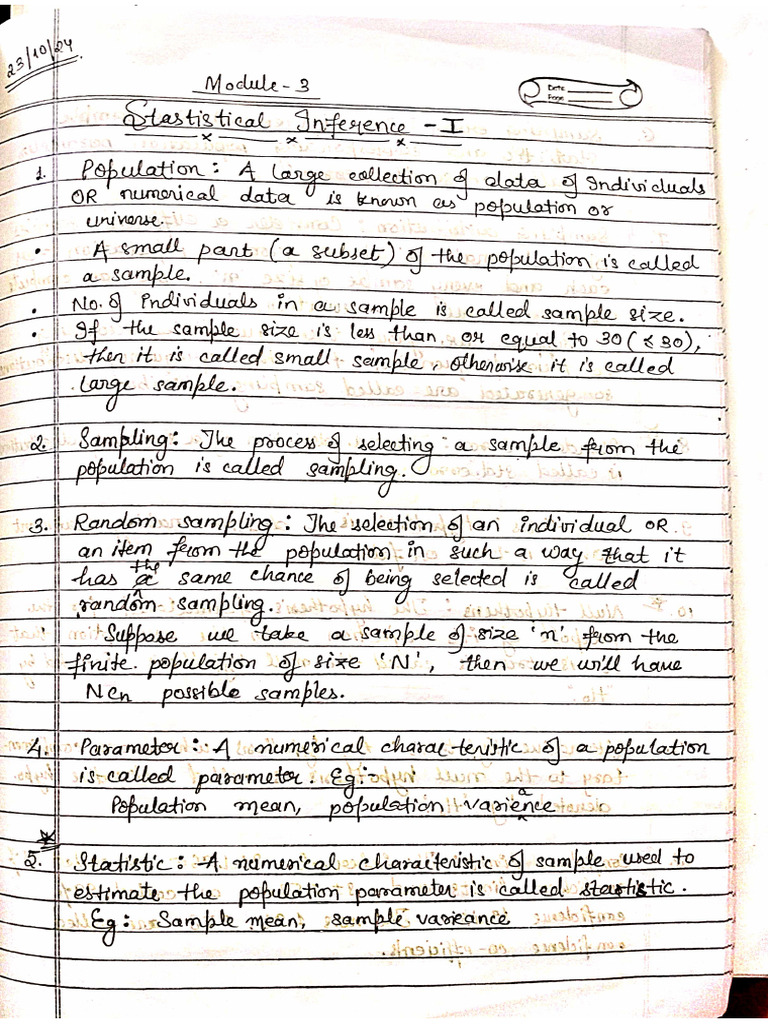 23/10/24
Module - 3
Date
Page
Stastistical Inference - I
1. Population : A large collection of data of Individuals
OR numerical data is known as population or
universe.
• A small part (a subset) of the population is called
a sample.
• No. of individuals in a sample is called sample size.
• If the sample size is less than or equal to 30 (≤ 30),
then it is called small sample, otherwise it is called
large sample.
2. Sampling : The process of selecting a sample from the
population is called sampling.
3. Random sampling : The selection of an individual OR
an item from the population in such a way that it
has the same chance of being selected is called
random sampling.
Suppose we take a sample of size 'n' from the
finite population of size 'N', then we will have
NCn possible samples.
4. Parameter : A numerical charac-teristic of a population
is called parameter. Eg :-
Population mean, population variance
5. Statistic : A numerical characteristic of sample used to
estimate the population parameter is called stastistic.
Eg : Sample mean, sample varieance